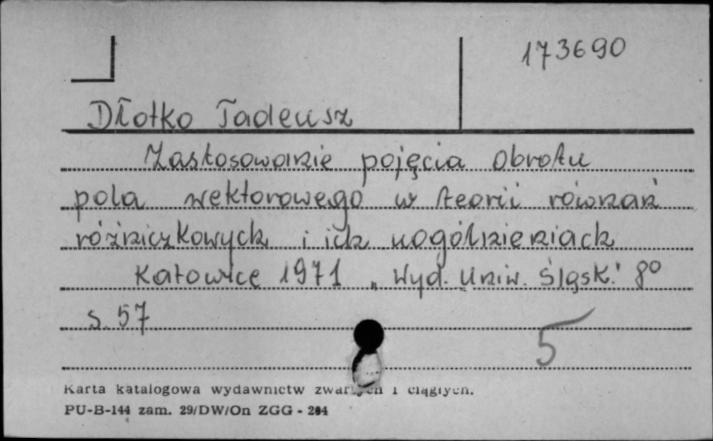 173690
Dłotko Tadeusz
Zastosowanie pojęcia obrotu
pola wektorowego w teorii równań
różniczkowych i ich uogólnieniach
Katowice 1971 "Wyd. Uniw. Śląsk." 8º
s. 57
5
Karta katalogowa wydawnictw zwartych i ciągłych.
PU-B-144 zam. 29/DW/On ZGG - 284